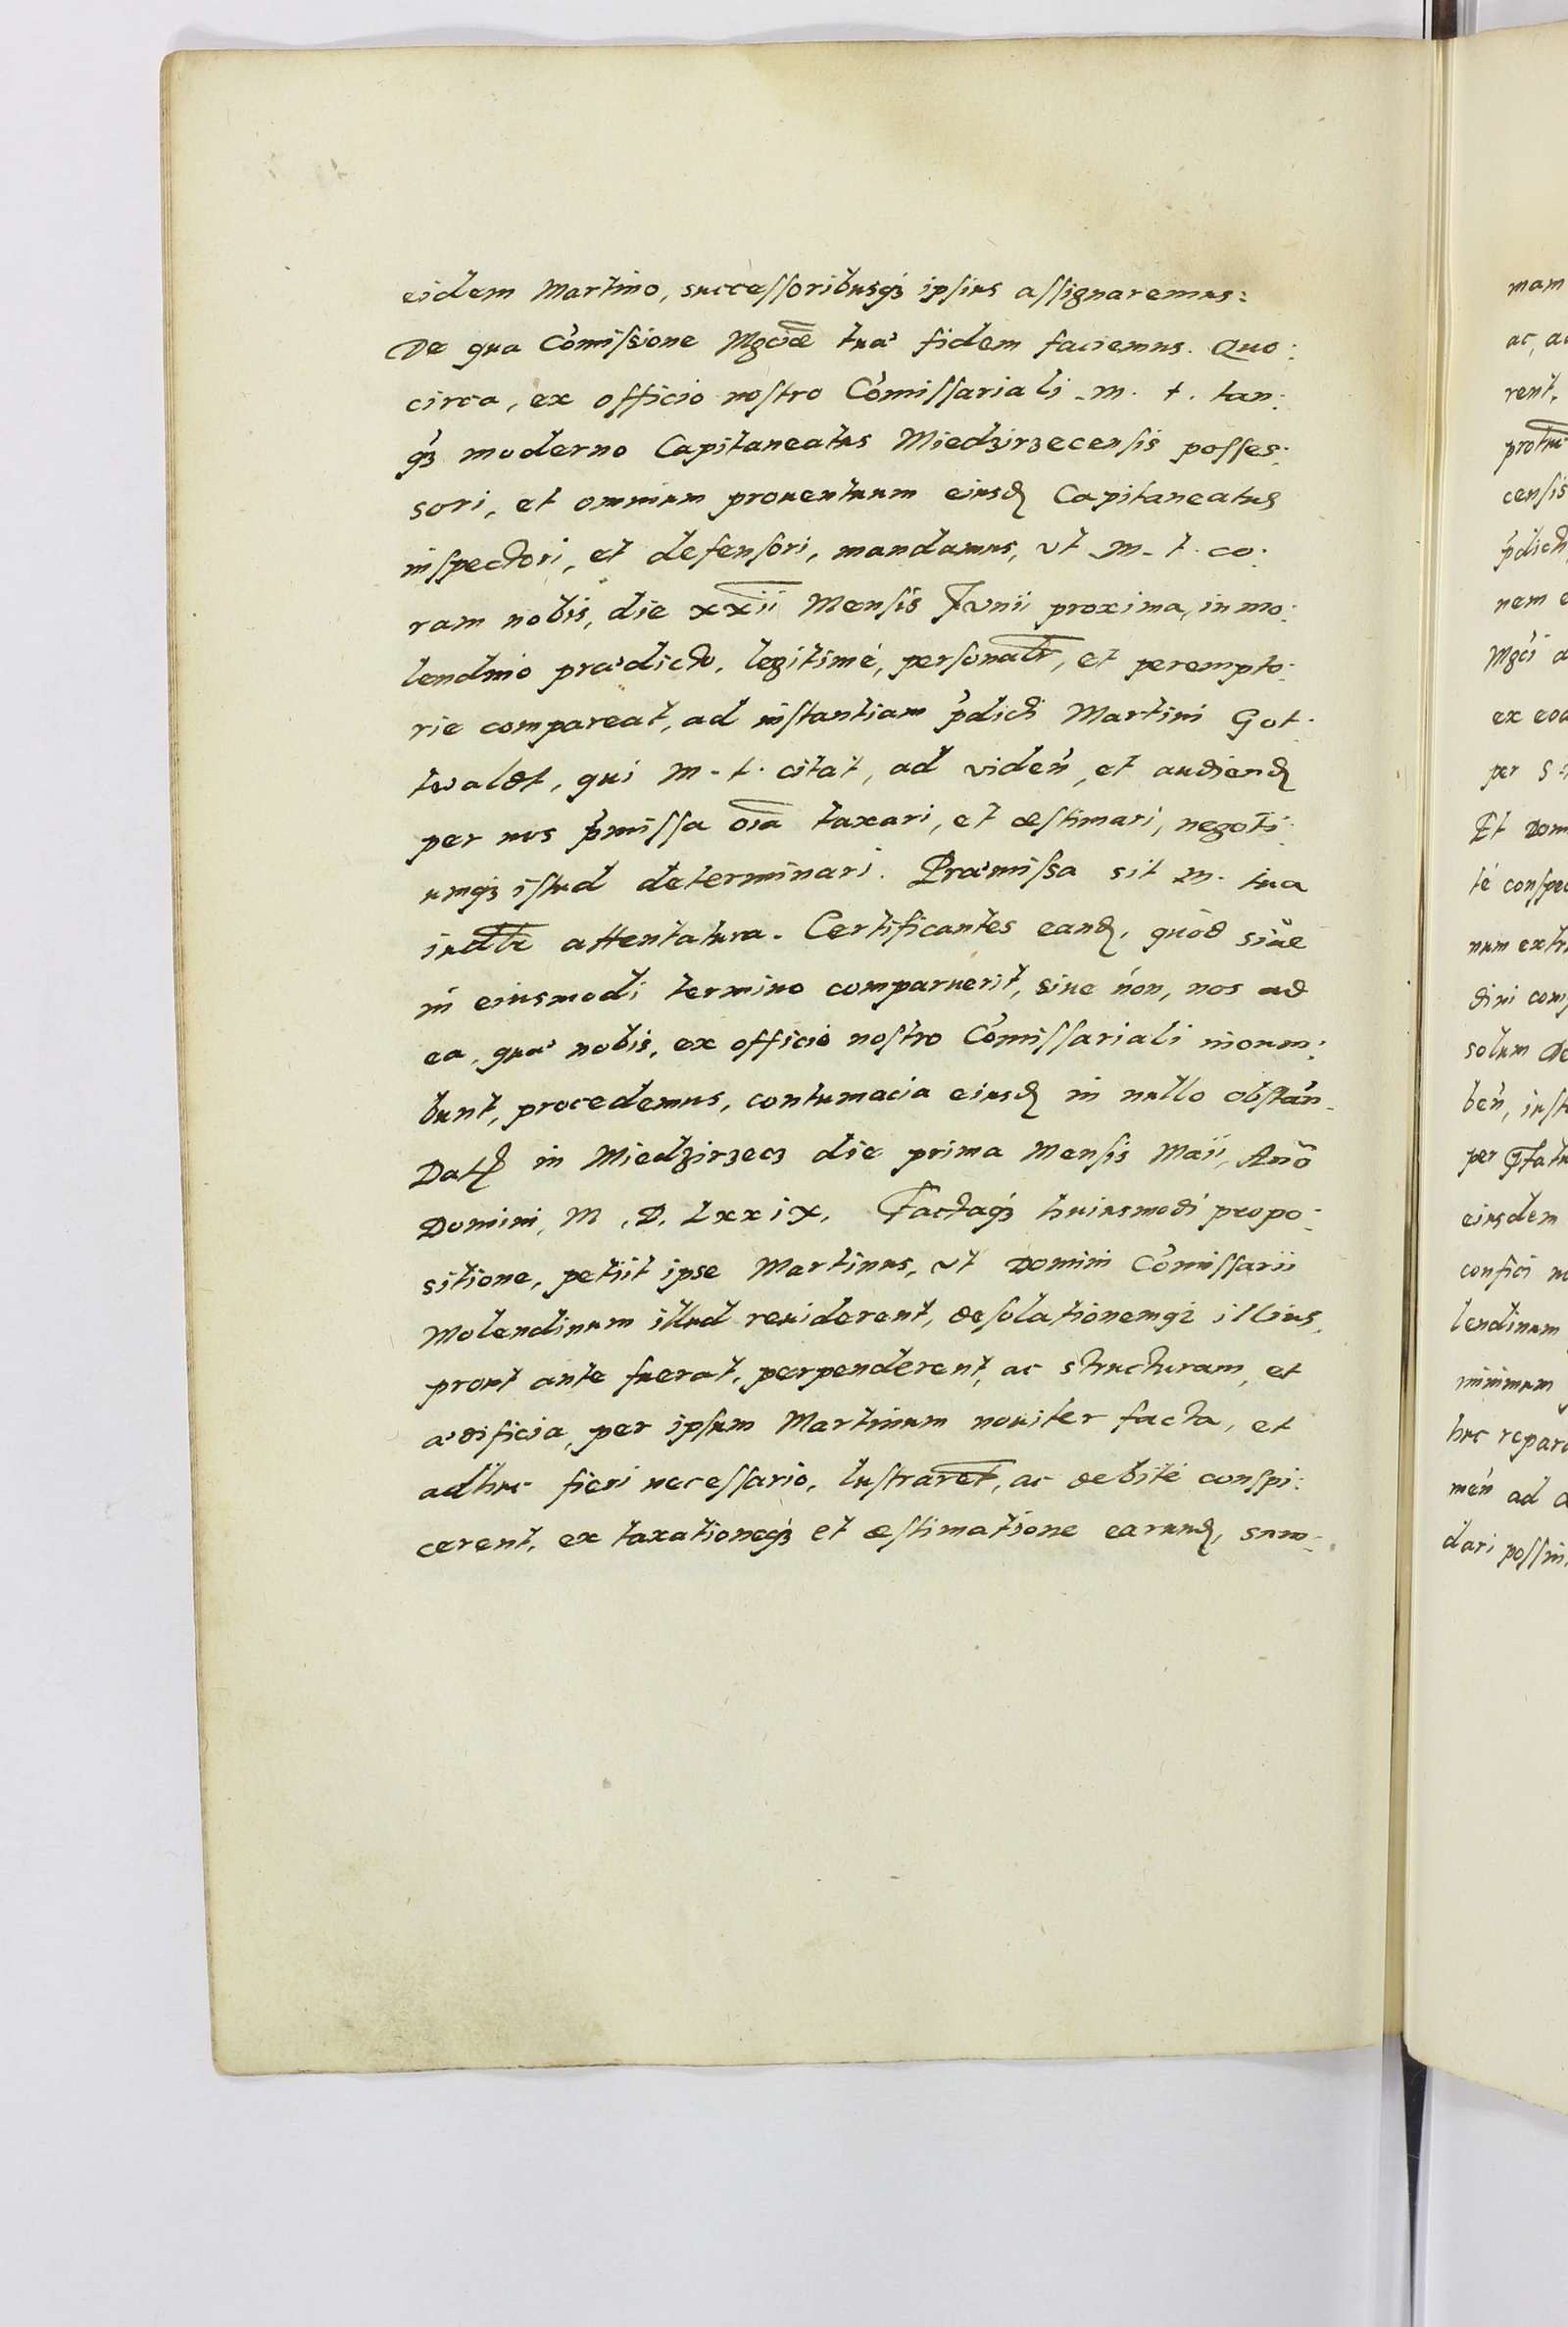 eidem Martino, successoribusq́ꝫ ipsius assignaremus:
De qua Com̃issione Mgciæ tuæ fidem faciemus. Quo:
circa, ex officio nostro Com̃issariali m. t. tan:
q̃ꝫ moderno Capitaneatus Miedzirzecensis posses:
sori, et omnium prouentuum eiusd Capitaneatus
inspectori, et defensori, mandamus, vt m. t. co:
ram nobis, die xxii Mensis Iunii proxima, in mo:
lendino prædicto, legitimé, personalr, et perempto:
rie compareat, ad instantiam p̃dicti Martini Got:
twaldt, qui m. t. citat, ad viden̄, et audiend
per nos p̃missa oīa taxari, et æstimari, negoti:
umqꝫ istud determinari. Præmissa sit m. tua
iudlr attentatura. Certificantes eand, quòd siue
in eiusmodi termino comparuerit, siue non, nos ad
ea, quæ nobis, ex officio nostro Com̃issariali incum:
bunt, procedemus, contumacia eiusd in nullo obstan̄.
Dat in Miedzirzecz die prima Mensis Maii, Ano
Domini, M, D, Lxxix, Factaq́ꝫ huiusmodi propo:
sitione, petiit ipse Martinus, vt Domini Com̃issarii
Molendinum illud reuiderent, desolationemqꝫ illius,
prout ante fuerat, perpenderent, ac structuram, et
ædificia, per ipsum Martinum nouiter facta, et
adhuc fieri necessario, lustraret, ac debité conspi:
cerent, ex taxationeq́ꝫ et æstimatione earund, sum:
mam
ac, 
rent,
censis
p̃dict
nem
Mgci
per S
Et Dom
té conspe
num extr
dini com
solum De
ben̄, iust
eiusdem
confici
lendinum
minimum
huc repar
men̄ ad
dari possin